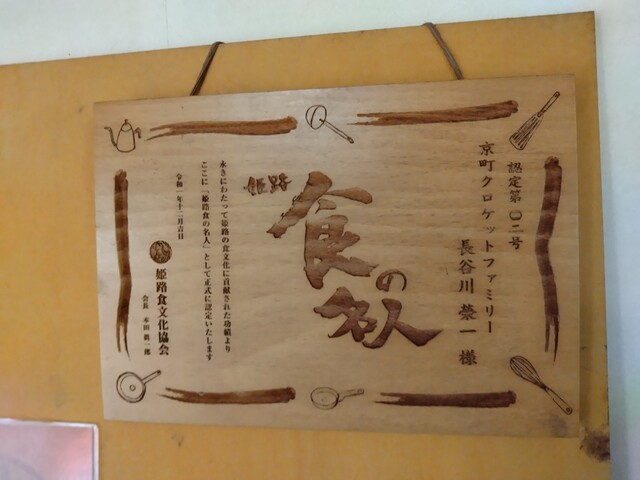 認定第〇二号
京町クロケットファミリー
長谷川榮一 様
姫路
食の名人
永きにわたって姫路の食文化に貢献された功績より
ここに「姫路食の名人」として正式に認定いたします
令和一年十二月吉日
姫路食文化協会
会長 本田眞一郎